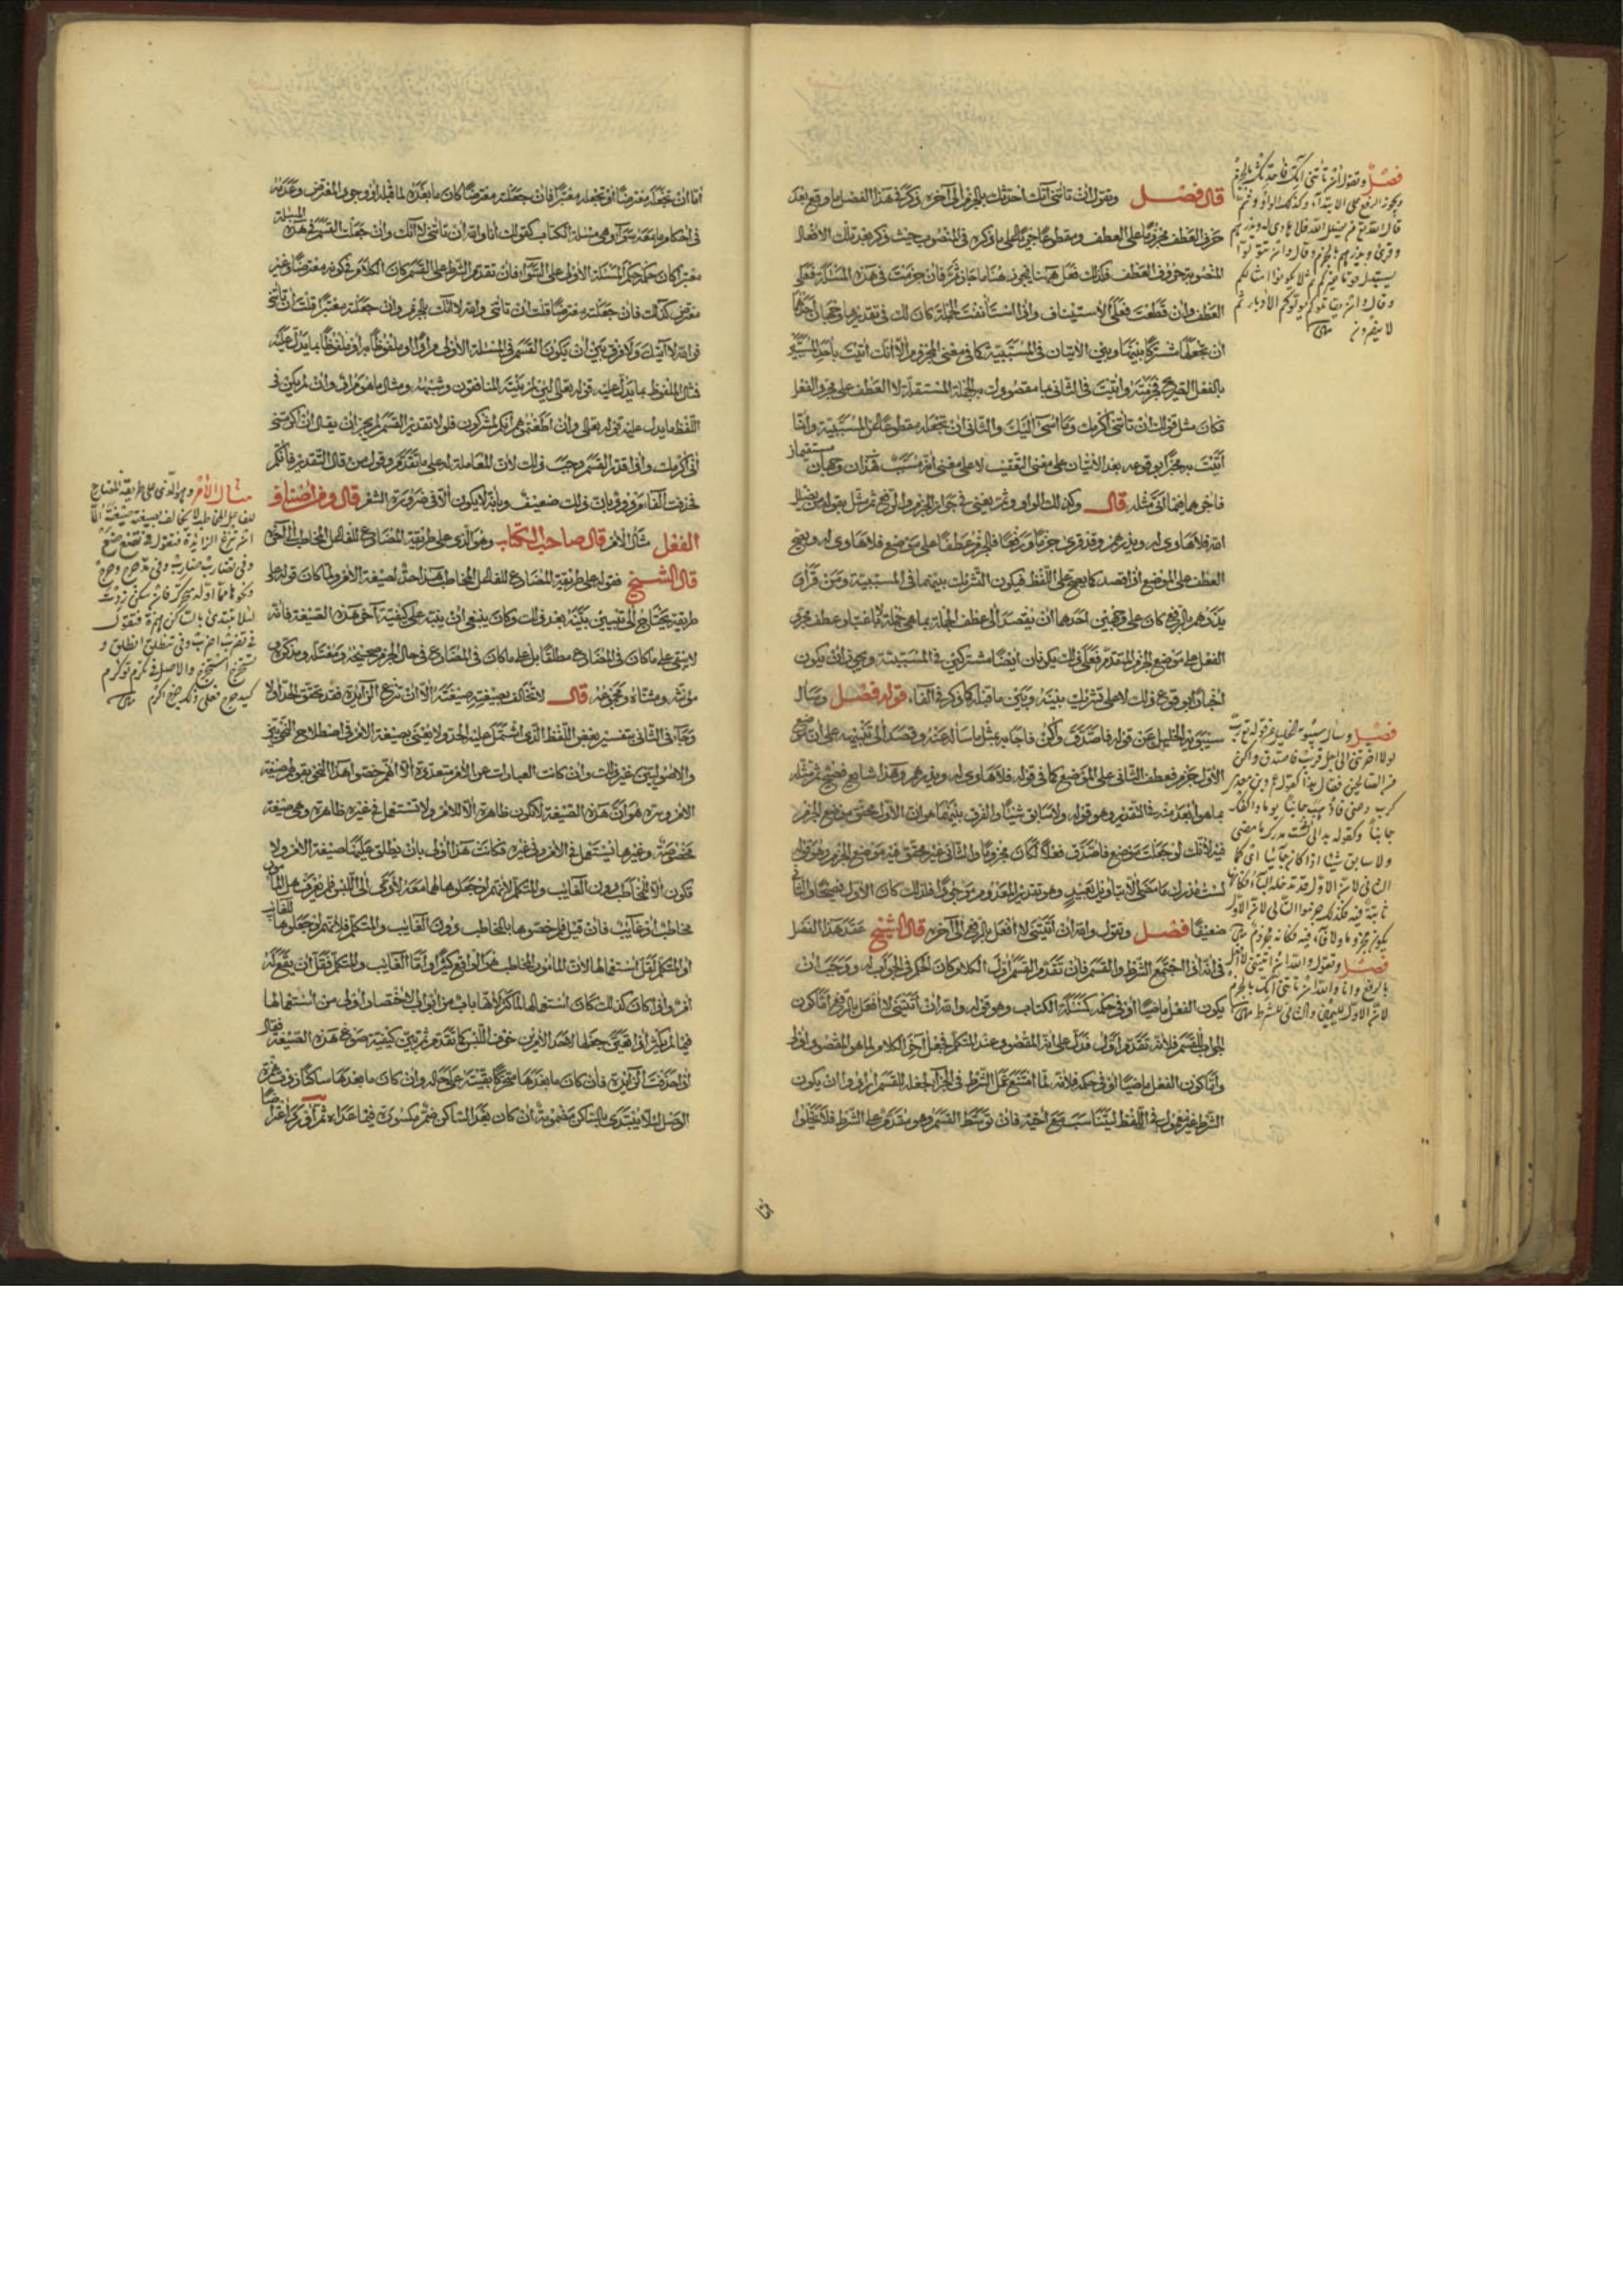 قال فصل وتقول ان تأتني آتك احدثك بالجزم الى آخره ذكر في هذا الفصل ما وقع بعد
حرف العطف مجزوما على العطف ومقطوعا جريا على ما ذكره في المنصوب حيث ذكر بعد تلك الافعال
المنصوبة حروف العطف فكذلك فعل ههنا فيجوز هنا ما جاز ثم فان جزمت في هذه المسئلة فعلى
العطف وان قطعت فعلى الاستيناف واذا استأنفت الجملة كان لك في تقديرها وجهان احدهما
ان تجعلها مشتركا بينها وبين الاتيان في المسببية كما في معنى المجزوم الا انك اتيت باحد المسببين
بالفعل الصريح فجزمته واتيت في الثاني بها مقصودك به الجملة المستقلة لا العطف على مجرد الفعل
فكان مثل قولك ان تأتني اكرمك وما اسئ اليك والثاني ان تجعله مقطوعا عن المسببية وانما
اتيت به مخبرا بوقوعه بعد الاتيان على معنى التعقيب لا على معنى انه مسبب هذان وجهان مستقيمان
فاجرهما فيما اتى مثله قال وكذلك الواو وثم يعني في جواز الجزم والرفع ثم مثل بقوله من يضلل
الله فلا هادي له ويذرهم وقد قرئ جزما ورفعا فالجزم عطفا على موضع فلا هادي له ويصح
العطف على الموضع اذا قصد كما يصح على اللفظ فيكون التشريك بينهما في المسببية ومن قرأ
يذرهم بالرفع كان على وجهين احدهما ان يقصد الى عطف الجملة بما هي جملة لا باعتبار عطف مجرد
الفعل على موضع الجزم المتقدم فعلى ذلك يكونان ايضا مشتركين في المسببية ويجوز ان يكون
اخبارا بوقوع ذلك لا على تشريك بينه وبين ما قبله كما ذكر في الفاء قوله فصل وسال
سيبويه الخليل عن قوله فاصدق واكن فاجابه بمثل ما ساله عنه وقصد الى تنبيهه على ان موضع
الاول جزم فعطف الثاني على الموضع كما في قوله فلا هادي له ويذرهم وهذا شايع فصيح ثم مثله
بما هو ابعد منه في التقدير وهو قوله ولا سابق شيئا والفرق بينهما هو ان الاول محقق موضع الجزم
فيه لانك لو جعلت موضع فاصدق فعلا لكان مجزوما والثاني غير محقق فيه موضع الجر وهو قوله
لست مدرك ما مضى الا بتاويل بعيد وهو تقدير المعدوم موجودا فلذلك كان الاول فصيحا والثاني
ضعيفا فصل وتقول والله ان اتيتني لا افعل بالرفع الى آخره قال الشيخ عقد هذا الفصل
في انه اذا اجتمع الشرط والقسم فان تقدم القسم اول الكلام كان الحكم في الجواب له ووجب ان
يكون الفعل ماضيا او في حكمه كمسئلة الكتاب وهو قوله والله ان اتيتني لا افعل بالرفع اما كون
الجواب للقسم فلانه تقدم اول فدل على انه المقصود عند المتكلم فجعل آخر الكلام لما هو المقصود اولا
واما كون الفعل ماضيا او في حكمه فلانه لما امتنع عمل الشرط في الجزاء لجعله للقسم ارادوا ان يكون
الشرط غير معمول في اللفظ ليتناسب مع اخيه فان توسط القسم وهو متقدم على الشرط فلا يخلوا
فصل وتقول ان تأتني آتك فاحدثك بالجزم
ويجوز الرفع على الابتداء وكذلك الواو وثم
قال الله تعالى من يضلل الله فلا هادي له ويذرهم
وقرئ ويذرهم بالجزم وقال وان تتولوا
يستبدل قوما غيركم ثم لا يكونوا امثالكم
وقال وان يقاتلوكم يولوكم الادبار ثم
لا ينصرون
فصل وسال سيبويه الخليل عن قوله تع رب
لولا اخرتني الى اجل قريب فاصدق واكن
من الصالحين فقال هذا كقول عمرو بن معدي
كرب دعني فاذهب جانبا يوما واكفك
جانبا وكقوله بدا لي اني لست مدرك ما مضى
ولا سابق شيئا اذا كان جائيا اي كما
الثاني لان الاول قد تدخله الباء فكانها
ثابتة فيه فكذلك جزموا الثاني لان الاول
يكون مجزوما ولا فاء فيه فكانه مجزوم
فصل وتقول والله ان اتيتني لا افعل
بالرفع وانا والله ان تأتني آتك بالجزم
لان الاول لليمين والثاني للشرط
اما ان تجعله معترضا او تجعله معتبرا فان جعلته معترضا كان ما بعده لما قبله او وجود المعترض وعدمه
في احكام ما معه سوآء وهي مسئلة الكتاب كقولك انا والله ان تأتني لا آتك وان جعلت القسم في هذه المسئلة
معتبرا كان حكمه حكم المسئلة الاولى على السواء فان تقدم الشرط على القسم كان الكلام في كونه معترضا وغير
معترض كذلك فان جعلته معترضا قلت ان تأتني والله لا آتك بالجزم وان جعلته معتبرا قلت ان تأتني
فوالله لا آتيك ولا فرق بين ان يكون القسم في المسئلة الاولى مرادا او ملفوظا به او ملفوظا بما يدل عليه
فمثال الملفوظ بما يدل عليه قوله تعالى لئن لم ينته المنافقون وشبهه ومثال ما هو مراد وان لم يكن في
اللفظ ما يدل عليه قوله تعالى وان اطعتموهم انكم لمشركون فلولا تقدير القسم لم يجز ان يقال ان اكرمتني
اني اكرمك واذا قدر القسم وجب ذلك لان المعاملة له على ما تقدم وقول من قال التقدير فانكم
فحذفت الفاء مردود بان ذلك ضعيف وبانه لا يكون الا في ضرورة الشعر قال ومن اصناف
الفعل مثال الامر قال صاحب الكتاب وهو الذي على طريقة المضارع للفاعل المخاطب الى آخره
قال الشيخ فقوله على طريقة المضارع للفاعل المخاطب هذا حد لصيغة الامر ولما كان قوله على
طريقة يحتاج الى تبيين بينه بعد ذلك وكان ينبغي ان ينبه على كيفية آخر هذه الصيغة فانه
لا يبقى على ما كان في المضارع مطلقا بل على ما كان في المضارع في حال الجزم صحيحه ومعتله ومذكره و
مؤنثه ومثناه ومجموعه قال لا تخالف بصيغته صيغته الا ان تنزع الزايدة فقد تحقق الحد اولا
وجاء في الثاني بتفسير بعض اللفظ الذي اشتمل عليه الحد ولا يعنى بصيغة الامر في اصطلاح النحويين
والاصوليين غير ذلك وان كانت العبارات عن الامر متعددة الا انهم خصوا هذا النحو بقولهم صيغة
الامر وسره هو ان هذه الصيغة لا تكون ظاهرة الا للامر ولا تستعمل في غيره ظاهرة وهي صيغة
مخصوصة وغيرها يستعمل في الامر وفي غيره فكانت هذه اولى بان يطلق عليها صيغة الامر ولا
تكون الا للمخاطب دون الغايب والمتكلم لانهم لو جعلوها لهما معه لادى الى اللبس فلم يعرف هل المأمور
مخاطب او غايب فان قيل فلم خصوها بالمخاطب دون الغايب والمتكلم فلانهم لو جعلوها للغايب
او المتكلم لقل استعمالها لان المأمور المخاطب هو الواقع كثيرا واما الغايب والمتكلم فقل ان يقع له
امر واذا كان كذلك كان استعمالها لما كثر لانها باب من ابواب الاختصار اولى من استعمالها
فيما لم يكثر اذا تعين جعلها لاحد الامرين خوف اللبس كما تقدم ثم بين كيفية صوغ هذه الصيغة فقال
اذا حذفت الزايدة فان كان ما بعدها متحركا بقيته على حاله وان كان ما بعدها ساكنا زدت همزة
الوصل لئلا يبتدئ بالساكن مضمومة ان كان بعد الساكن ضم ومكسورة فيما عداه ثم اورد اعتراضا
مثال الامر وهو الذي على طريقة المضارع
للفاعل المخاطب لا يخالف بصيغته صيغته الا
ان تنزع الزائدة فتقول في تضع ضع
وفي تضارب ضارب وفي تدحرج دحرج
ونحوها مما اوله متحرك فان سكن زدت
لئلا تبتدئ بالساكن همزة فتقول
في تضرب اضرب وفي تنطلق انطلق و
تستخرج استخرج والاصل في تكرم تؤكرم
كيدحرج فعلى ذلك خرج اكرم